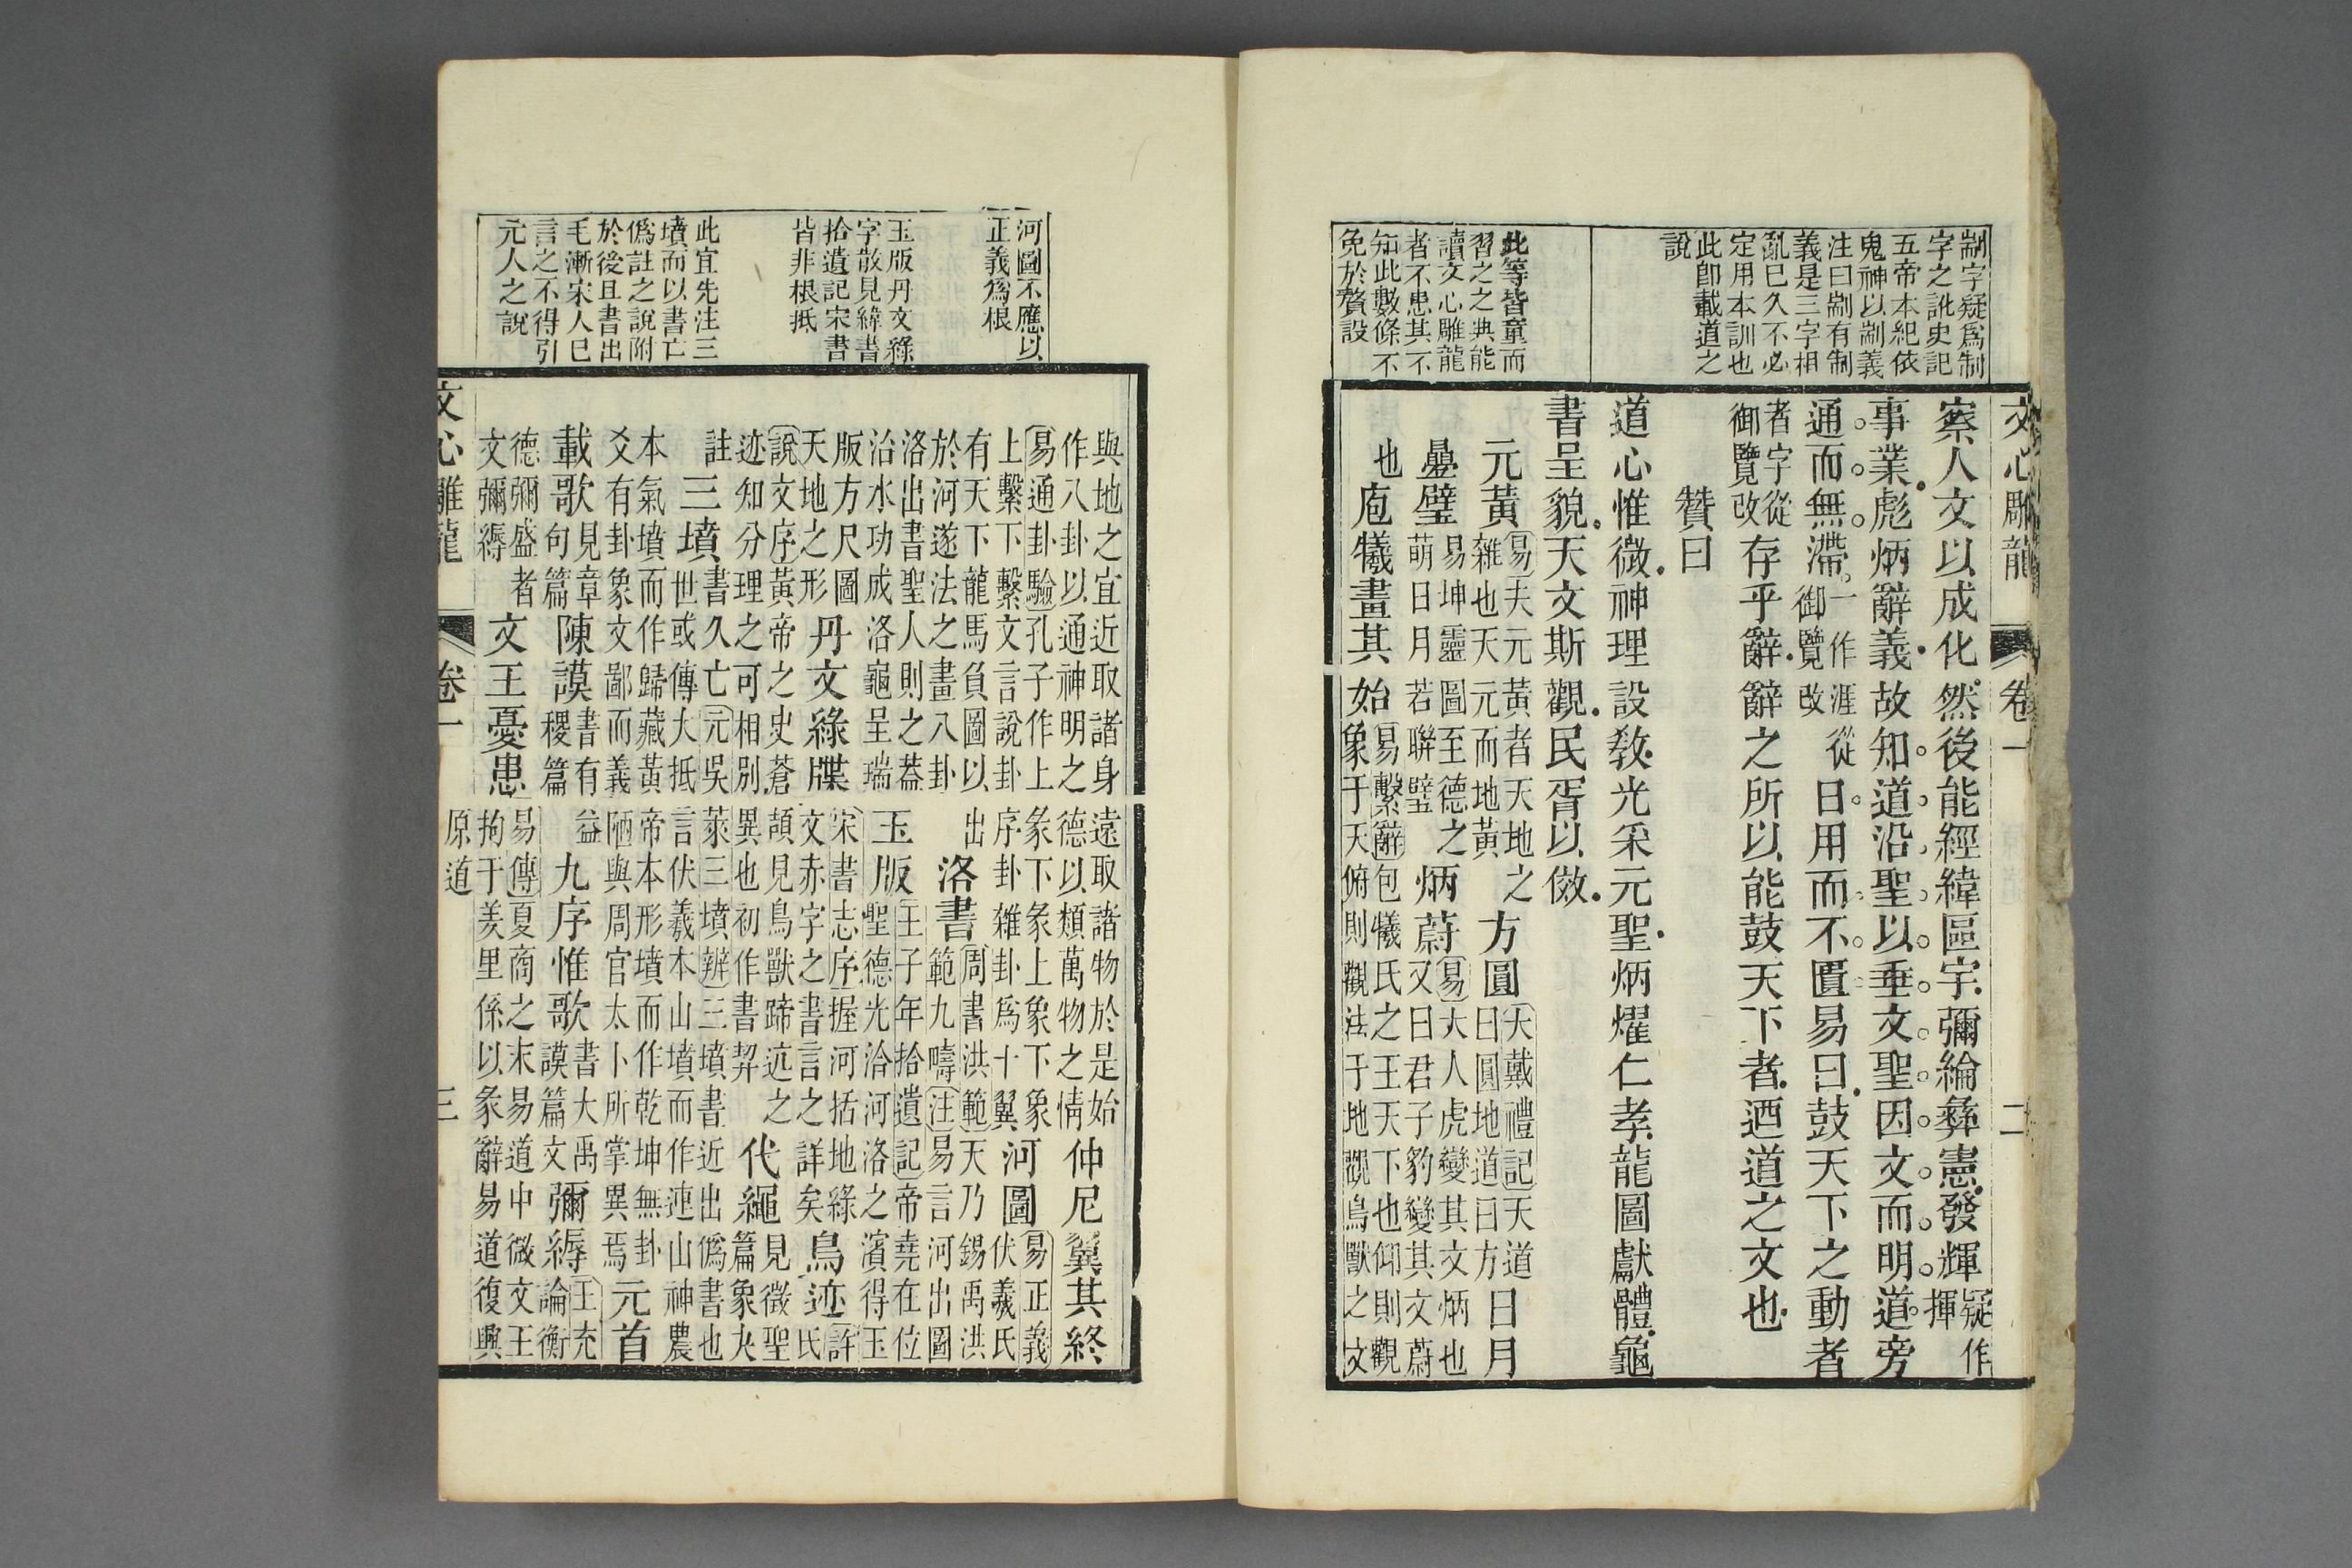 剬字疑爲制
字之訛史記
五帝本紀依
鬼神以剬義
注曰剬有制
義是三字相
亂已久不必
定用本訓也
此卽載道之
說
此等皆童而
習之之典能
讀文心雕龍
者不患其不
知此數條不
免於贅設
文心雕龍 卷一 二
察人文以成化然後能經緯區宇彌綸彝憲發輝疑作揮
事業彪炳辭義故知道沿聖以垂文聖因文而明道旁
通而無滯一作涯從御覽改日用而不匱易曰鼓天下之動者
者字從御覽改存乎辭辭之所以能鼓天下者迺道之文也
贊曰
道心惟微神理設敎光采元聖炳燿仁孝龍圖獻體龜
書呈貌天文斯觀民胥以傚
元黃易夫元黃者天地之雜也天元而地黃方圓大戴禮記天道曰圓地道曰方日月
疊璧易坤靈圖至德之萌日月若聯璧炳蔚易大人虎變其文炳也又曰君子豹變其文蔚
也庖犧畫其始易繫辭包犧氏之王天下也仰則觀象于天俯則觀法于地觀鳥獸之文
河圖不應以
正義爲根
玉版丹文綠
字散見緯書
拾遺記宋書
皆非根抵
此宜先注三
墳而以書亡
僞註之說附
於後且書出
毛漸宋人已
言之不得引
元人之說
與地之宜近取諸身遠取諸物於是始作八卦以通神明之德以類萬物之情仲尼翼其終
易通卦驗孔子作上彖下彖上象下象上繫下繫文言說卦序卦雜卦爲十翼河圖易正義伏羲氏
有天下龍馬負圖以出於河遂法之畫八卦洛書周書洪範天乃錫禹洪範九疇注易言河出圖
洛出書聖人則之蓋治水功成洛龜呈瑞玉版王子年拾遺記帝堯在位聖德光洽河洛之濱得玉
版方尺圖天地之形丹文綠牒宋書志序握河括地綠文赤字之書言之詳矣鳥迹許氏
說文序黃帝之史蒼頡見鳥獸蹄迒之迹知分理之可相別異也初作書契代繩見徵聖篇象夬
註三墳書久亡元吳萊三墳辨三墳書近出僞書也世或傳大抵言伏羲本山墳而作連山神農
本氣墳而作歸藏黃帝本形墳而作乾坤無卦爻有卦象文鄙而義陋與周官太卜所掌異焉元首
載歌見章句篇陳謨書有益稷篇九序惟歌書大禹謨篇文彌縟王充論衡
德彌盛者文彌縟文王憂患易傳夏商之末易道中微文王拘于羑里係以彖辭易道復興
文心雕龍 卷一 原道 三